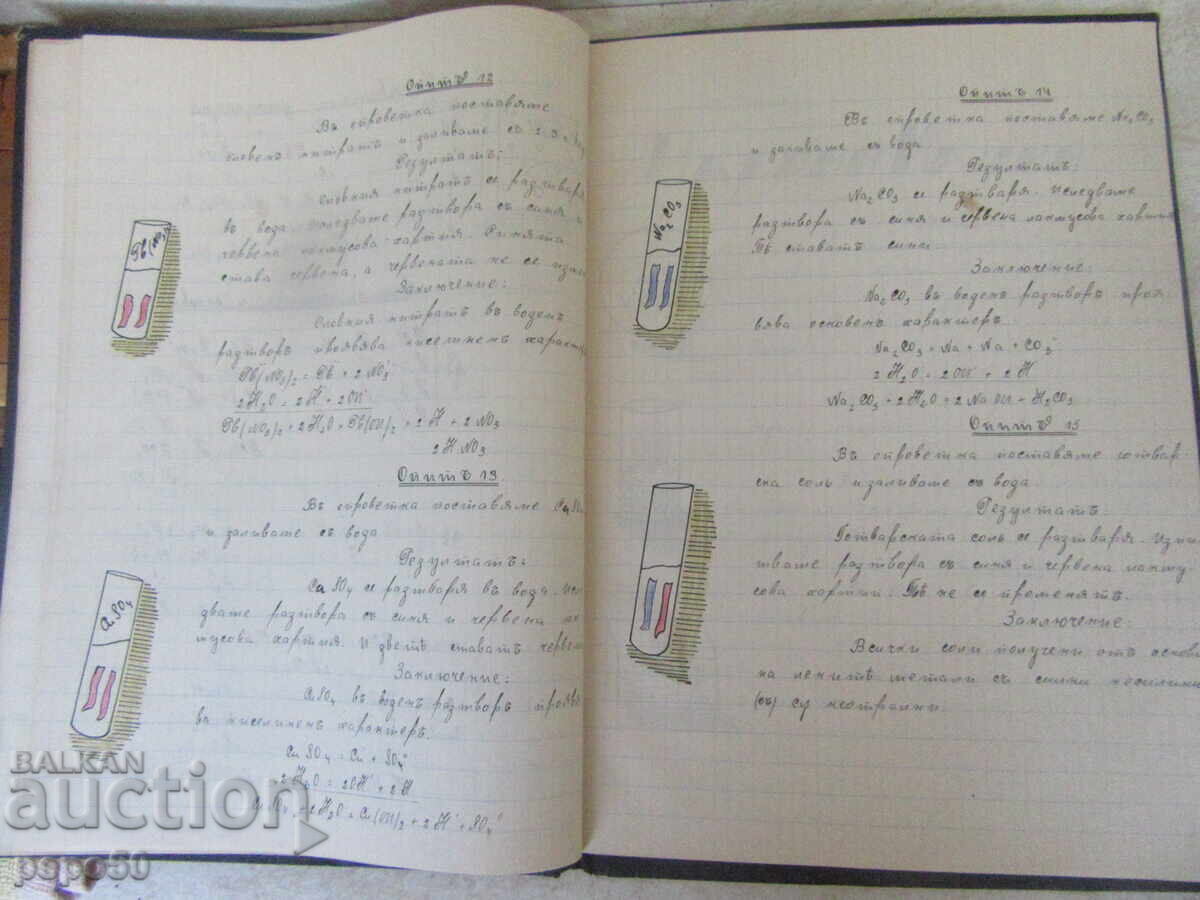 Опитъ 12
Въ епроветка поставяме
словенъ нитратъ и заливаме съ
Резултатъ:
Словния нитратъ се разтваря
въ вода. Изследваме разтвора съ синя и
червена лакмусова хартия. Синята
става червена, а червената не се
Заключение:
Словния нитратъ въ воденъ
разтворъ проявява киселиненъ
Pb(NO3)2 = Pb + 2NO3
2H2O = 2H + 2OH
Pb(NO3)2 + 2H2O = Pb(OH)2 + 2H + 2NO3
2HNO3
Опитъ 13
Въ епроветка поставяме CuSO4
и заливаме съ вода
Резултатъ:
CuSO4 се разтваря въ вода. Изсл
дваме разтвора съ синя и червена лак
мусова хартия. И дветѣ ставатъ червен
Заключение:
CuSO4 въ воденъ разтворъ проявя
ва киселиненъ характеръ.
CuSO4 = Cu + SO4
2H2O = 2OH + 2H
+ 2H2O = Cu(OH)2 + 2H + SO4
Pb(NO3)
CuSO4
Опитъ 14
Въ епроветка поставяме Na2CO3
и заливаме съ вода
Резултатъ:
Na2CO3 се разтваря. Изследваме
разтвора съ синя и червена лакмусова хартия
Тѣ ставатъ сини.
Заключение:
Na2CO3 въ воденъ разтворъ проя
вява основенъ характеръ.
Na2CO3 = Na + Na + CO3
2H2O = 2OH + 2H
Na2CO3 + 2H2O = 2NaOH + H2CO3
Опитъ 15
Въ епроветка поставяме готвар-
ска соль и заливаме съ вода.
Резултатъ:
Готварската соль се разтваря. Изпи
тваме разтвора съ синя и червена лакму
сова хартии. Тѣ не се променятъ.
Заключение:
Всички соли получени отъ основи
на лекитѣ метали съ силни киселини
(съ) су неотрални.
Na2CO3
BALKAN
auction
pepo50